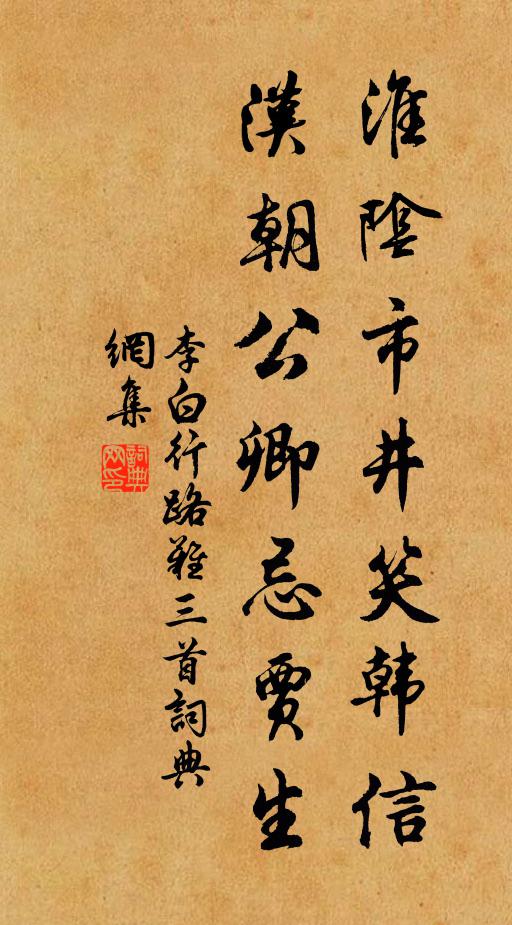 淮陰市井笑韓信
漢朝公卿忌賈生
李白行路難三首詞典
網集
詞典網印